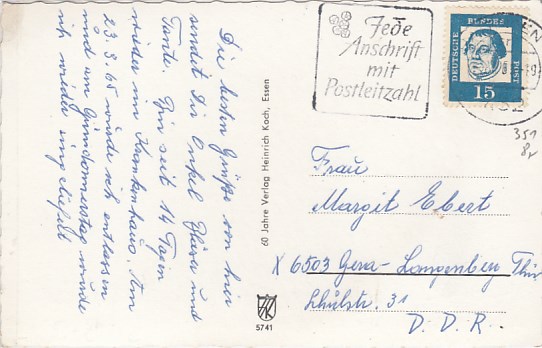 Die besten Grüße von hier
sendet Dir Onkel und
Tante. Bin seit 14 Tagen
wieder im Krankenhaus. Am
23.3.65 wurde ich entlassen
und am Gründonnerstag wurde
ich wieder eingeliefert
60 Jahre Verlag Heinrich Koch, Essen
5741
Jede
Anschrift
mit
Postleitzahl
DEUTSCHE BUNDESPOST
15
351
8,-
Frau
Margit Ebert
X 6503 Gera-Langenberg Thür
Schulstr. 31
D. D. R.